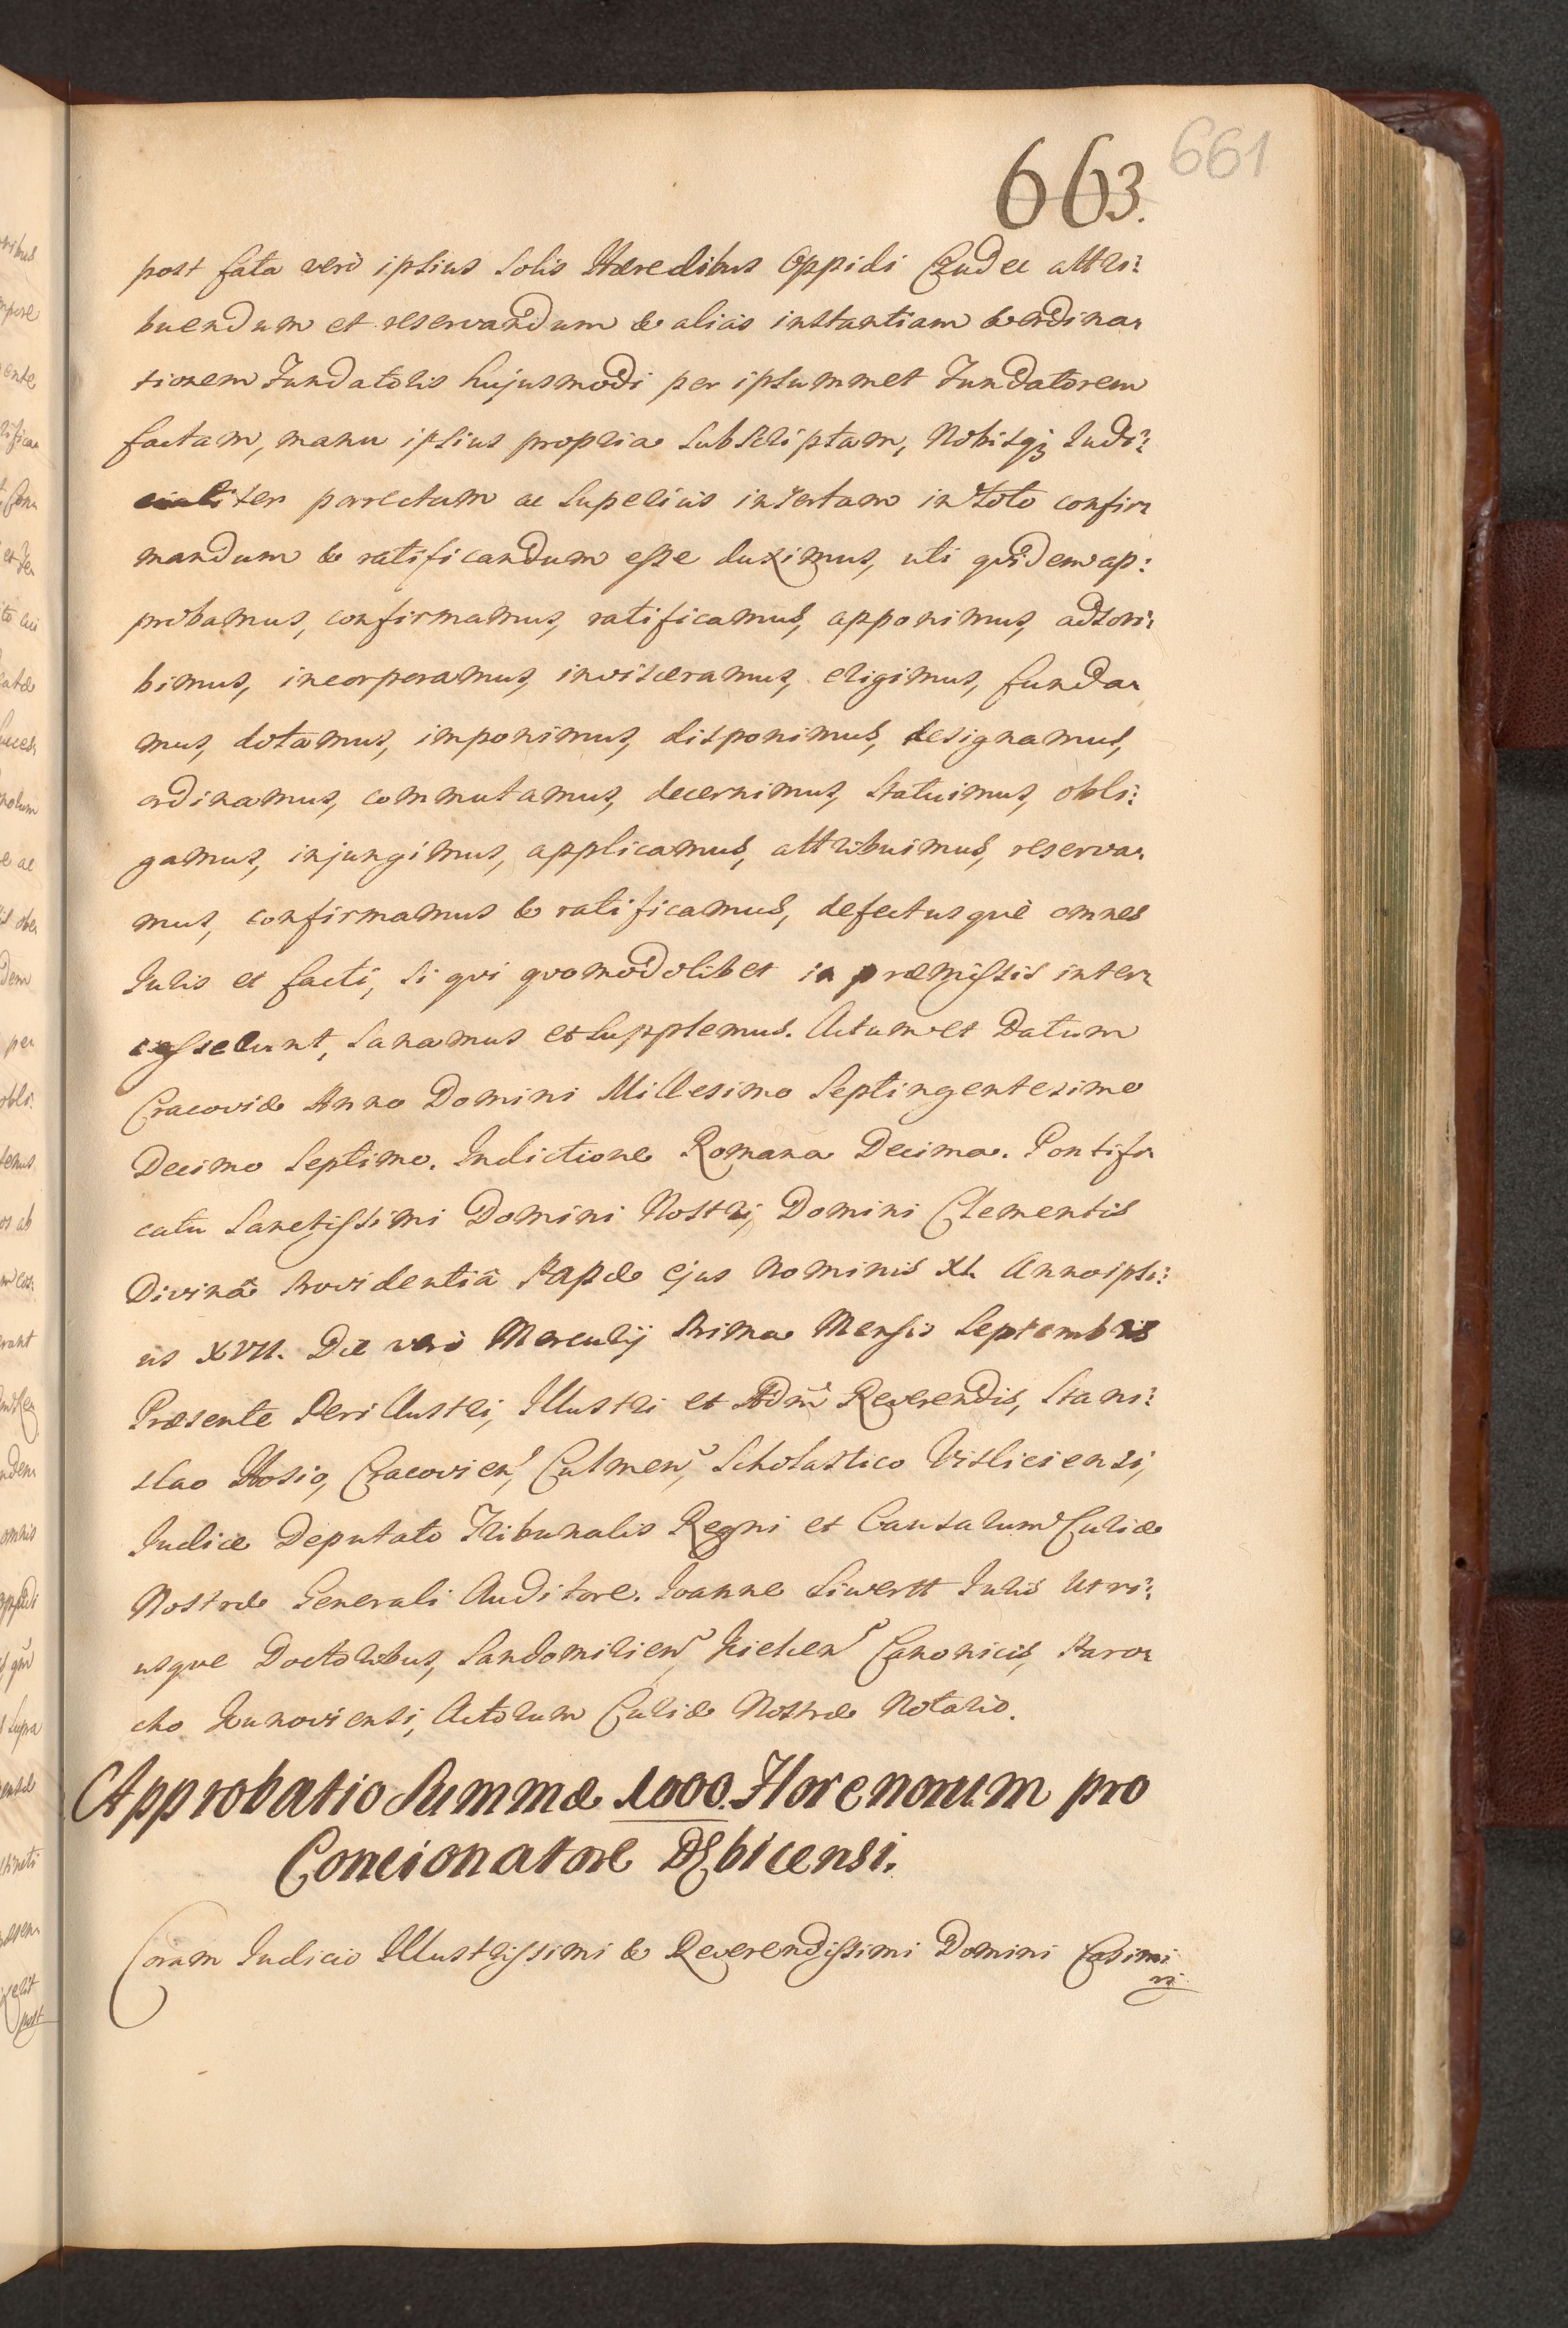 663. 661
post fata verò ipsius Solis Hæredibus Oppidi Czudec attri:
buendum et reservandum & alias instantiam & ordina:
tionem Fundatoris hujusmodi per ipsummet Fundatorem
factam, manu ipsius propria subscriptam, Nobisq; Judi:
cialiter porrectam ac superius insertam in toto confir:
mandum & ratificandum esse duximus, uti quidem ap:
probamus, confirmamus, ratificamus, apponimus, adscri:
bimus, incorporamus, invisceramus, erigimus, funda:
mus, dotamus, imponimus, disponimus, designamus,
ordinamus, commutamus, decernimus, statuimus, obli:
gamus, injungimus, applicamus, attribuimus, reserva:
mus, confirmamus & ratificamus, defectusquè omnes
Juris et facti, si qui quomodolibet in præmissis inter:
cesserunt, sanamus et supplemus. Actum et Datum
Cracoviæ Anno Domini Millesimo Septingentesimo
Decimo Septimo. Indictione Romana Decima. Pontifi:
catu Sanctissimi Domini Nostri, Domini Clementis
Divinâ Providentiâ Papæ ejus Nominis XI. Anno ipsi:
us XVII. Die verò Mercurij Prima Mensis Septembris
Præsente Perillustri, Illustri et Adm Reverendis, Stani:
slao Hosio, Cracovien, Culmen, Scholastico Visliciensi,
Judice Deputato Tribunalis Regni et Causarum Curiæ
Nostræ Generali Auditore. Joanne Siwertt Juris Utri:
usque Doctoribus, Sandomirien, Kielcen Canonicis, Paro:
cho Kunoviensi, Actorum Curiæ Nostræ Notario.
Approbatio Summæ 1000. Florenorum pro
Concionatore Dębicensi.
Coram Judicio Illustrissimi & Reverendissimi Domini Casimi
ri